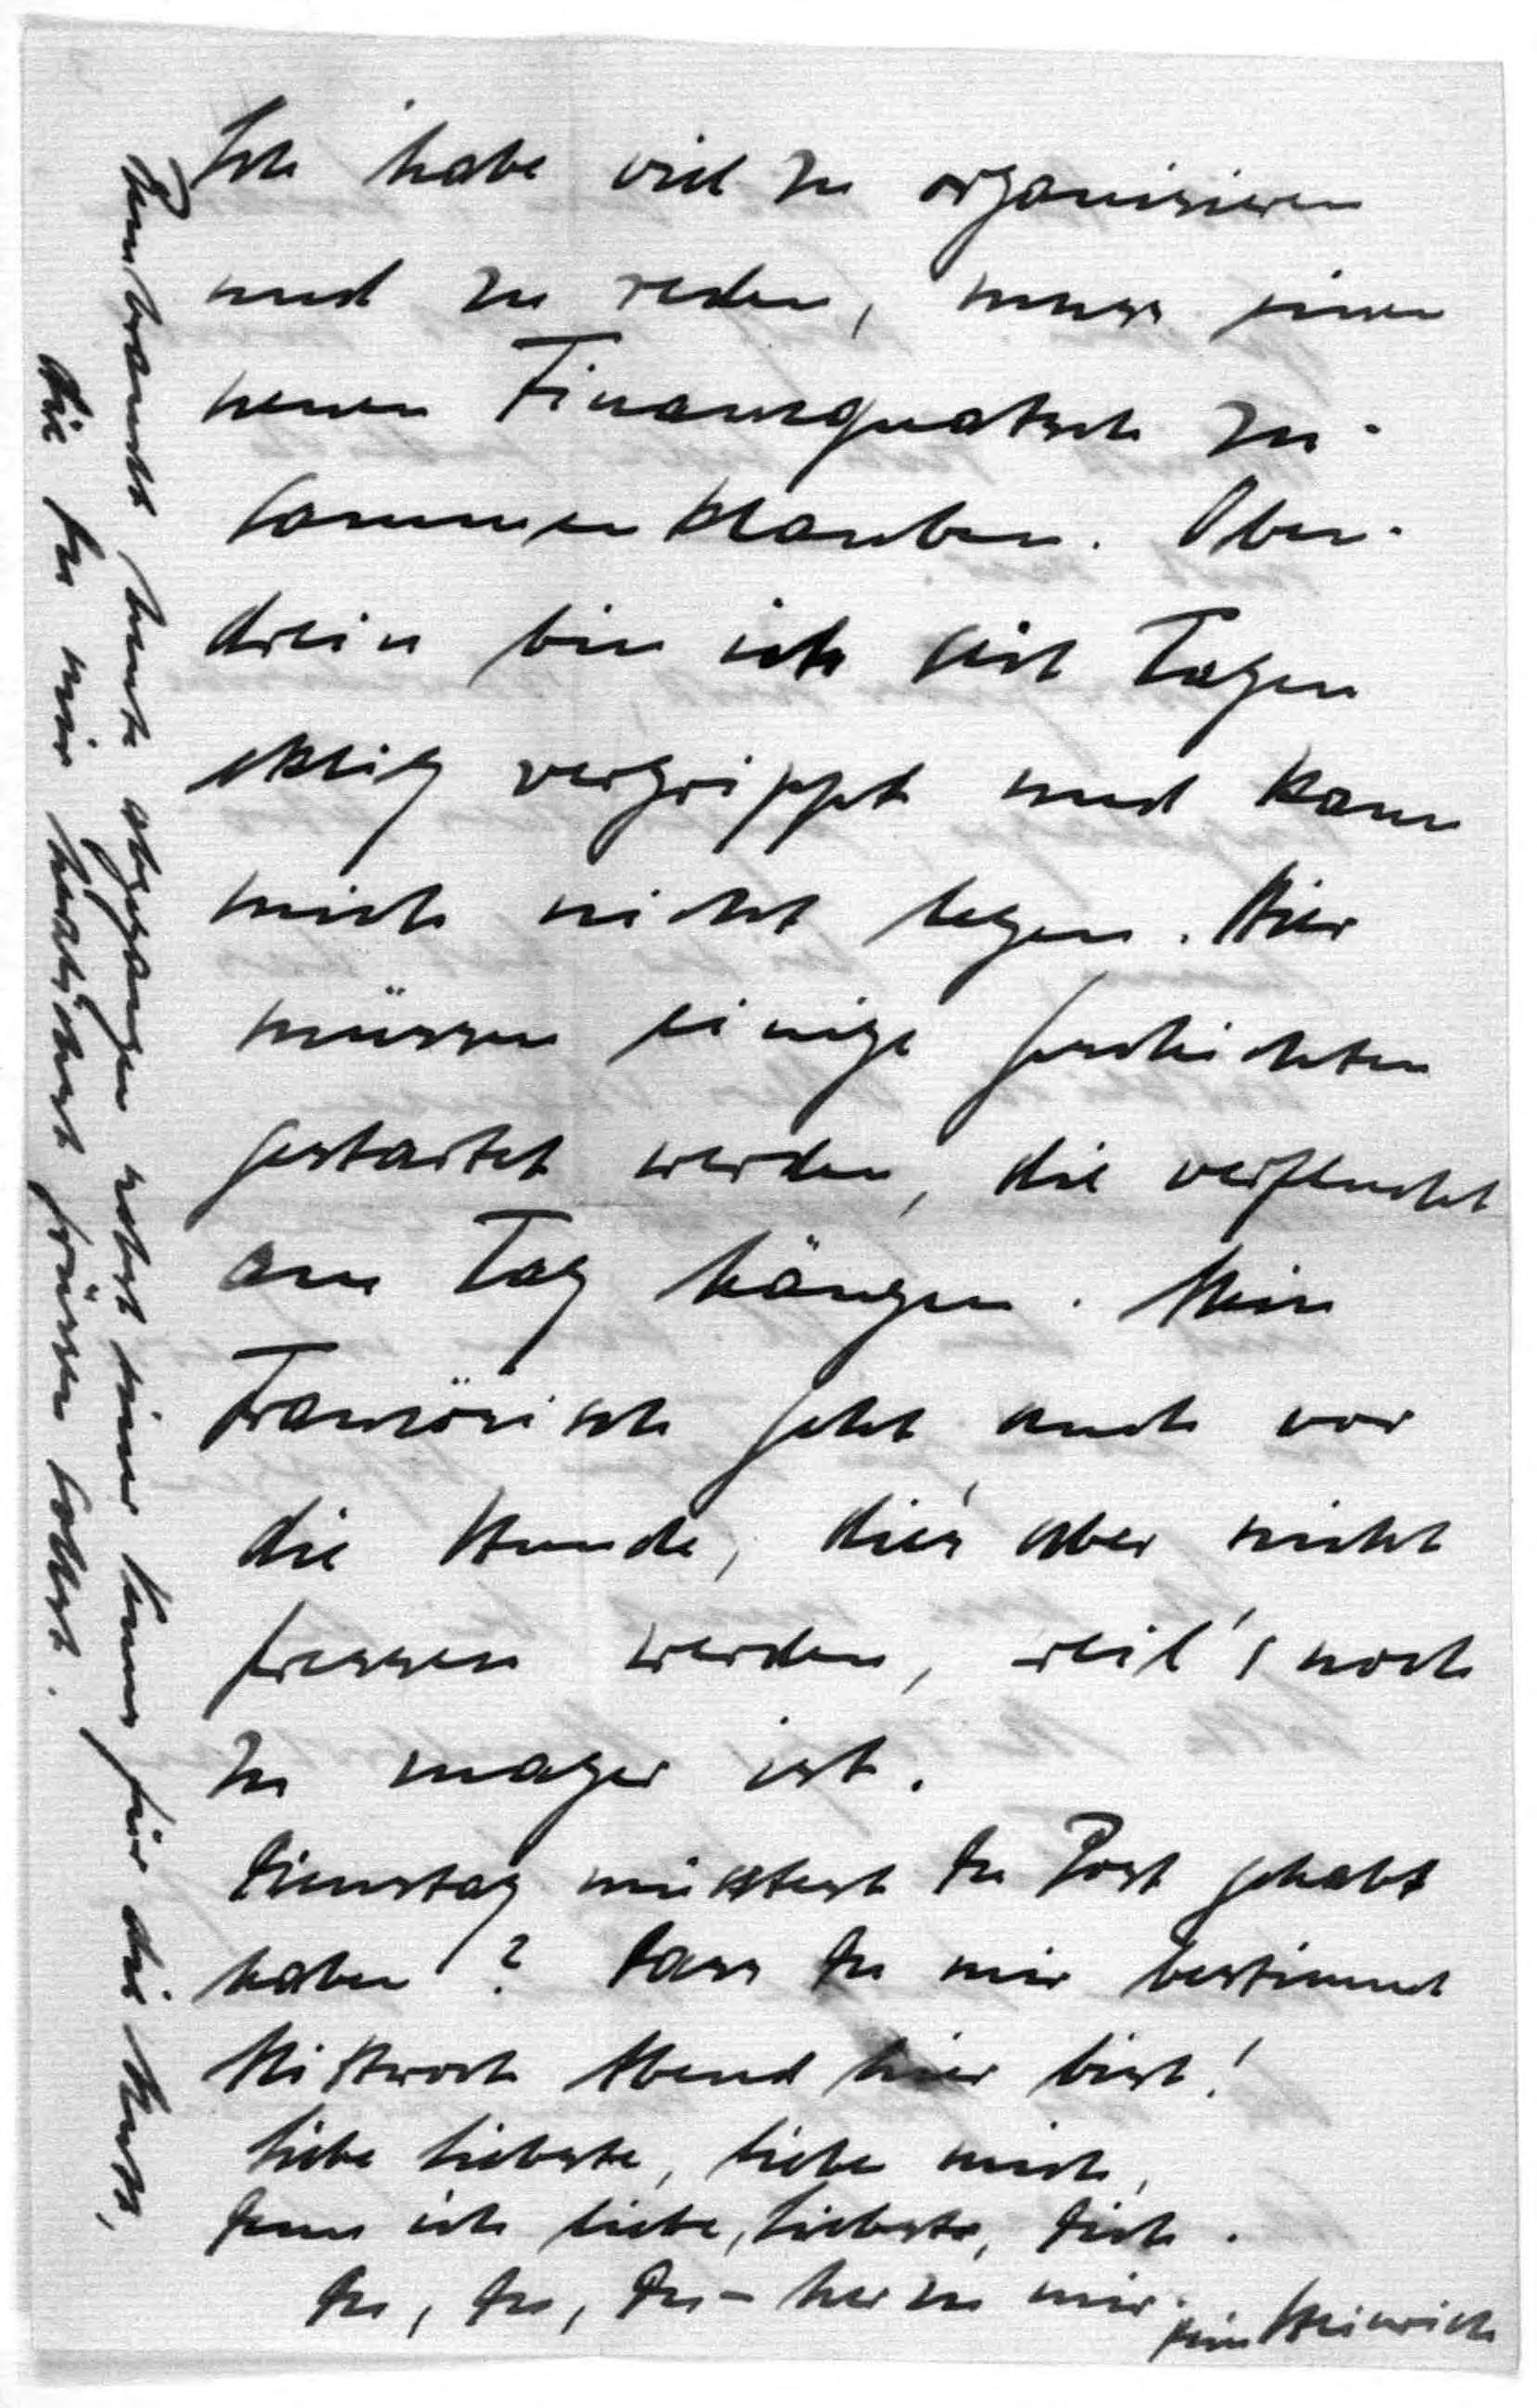 Ich habe viel zu organisieren
und zu reden, muss einen
neuen Finanzquatsch zu-
sammenklauben. Oben-
drein bin ich seit Tagen
eklig vergrippt und kann
mich nicht legen. Hier
müssen einige Geschichten
gestartet werden, die verflucht
am Tag hängen. Mein
Französisch geht auch vor
die Hunde, die's aber nicht
fressen werden, weil's noch
zu mager ist.
Dienstag müsstest Du Post gehabt
haben? Dass Du mir bestimmt
Mittwoch Abend hier bist!
Liebe Liebste, liebe mich,
denn ich liebe, Liebste, Dich.
Du, Du, Du – her zu mir.
Dein Heinrich
Rembrandt heute abgegangen nebst einer für die Kurts,
die Du mir herzlichst grüssen sollst.